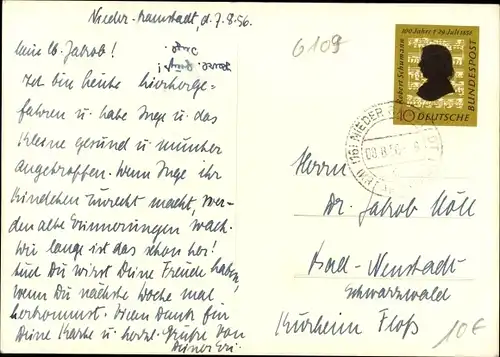 Nieder-Ramstadt, d. 7.8.56.
Mein lb. Jakob!
Ich bin heute hierherge-
fahren u. habe Inge u. das
Kleine gesund u. munter
angetroffen. Wenn Inge ihr
Kindchen zurecht macht, wer-
den alte Erinnerungen wach.
Wie lange ist das schon her!
Und Du wirst Deine Freude haben,
wenn Du nächste Woche mal
herkommst. Vielen Dank für
Deine Karte u. herzl. Grüße von
Deiner
6109
100 Jahre † 29. Juli 1856
Robert Schumann
10 DEUTSCHE
BUNDESPOST
(16) NIEDER
Herrn
Dr. Jakob Nöll
Bad-Neustadt
Schwarzwald
Kurheim Floß
10€